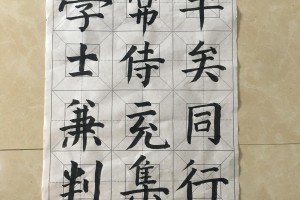 矣同行
常侍充集
學士兼判